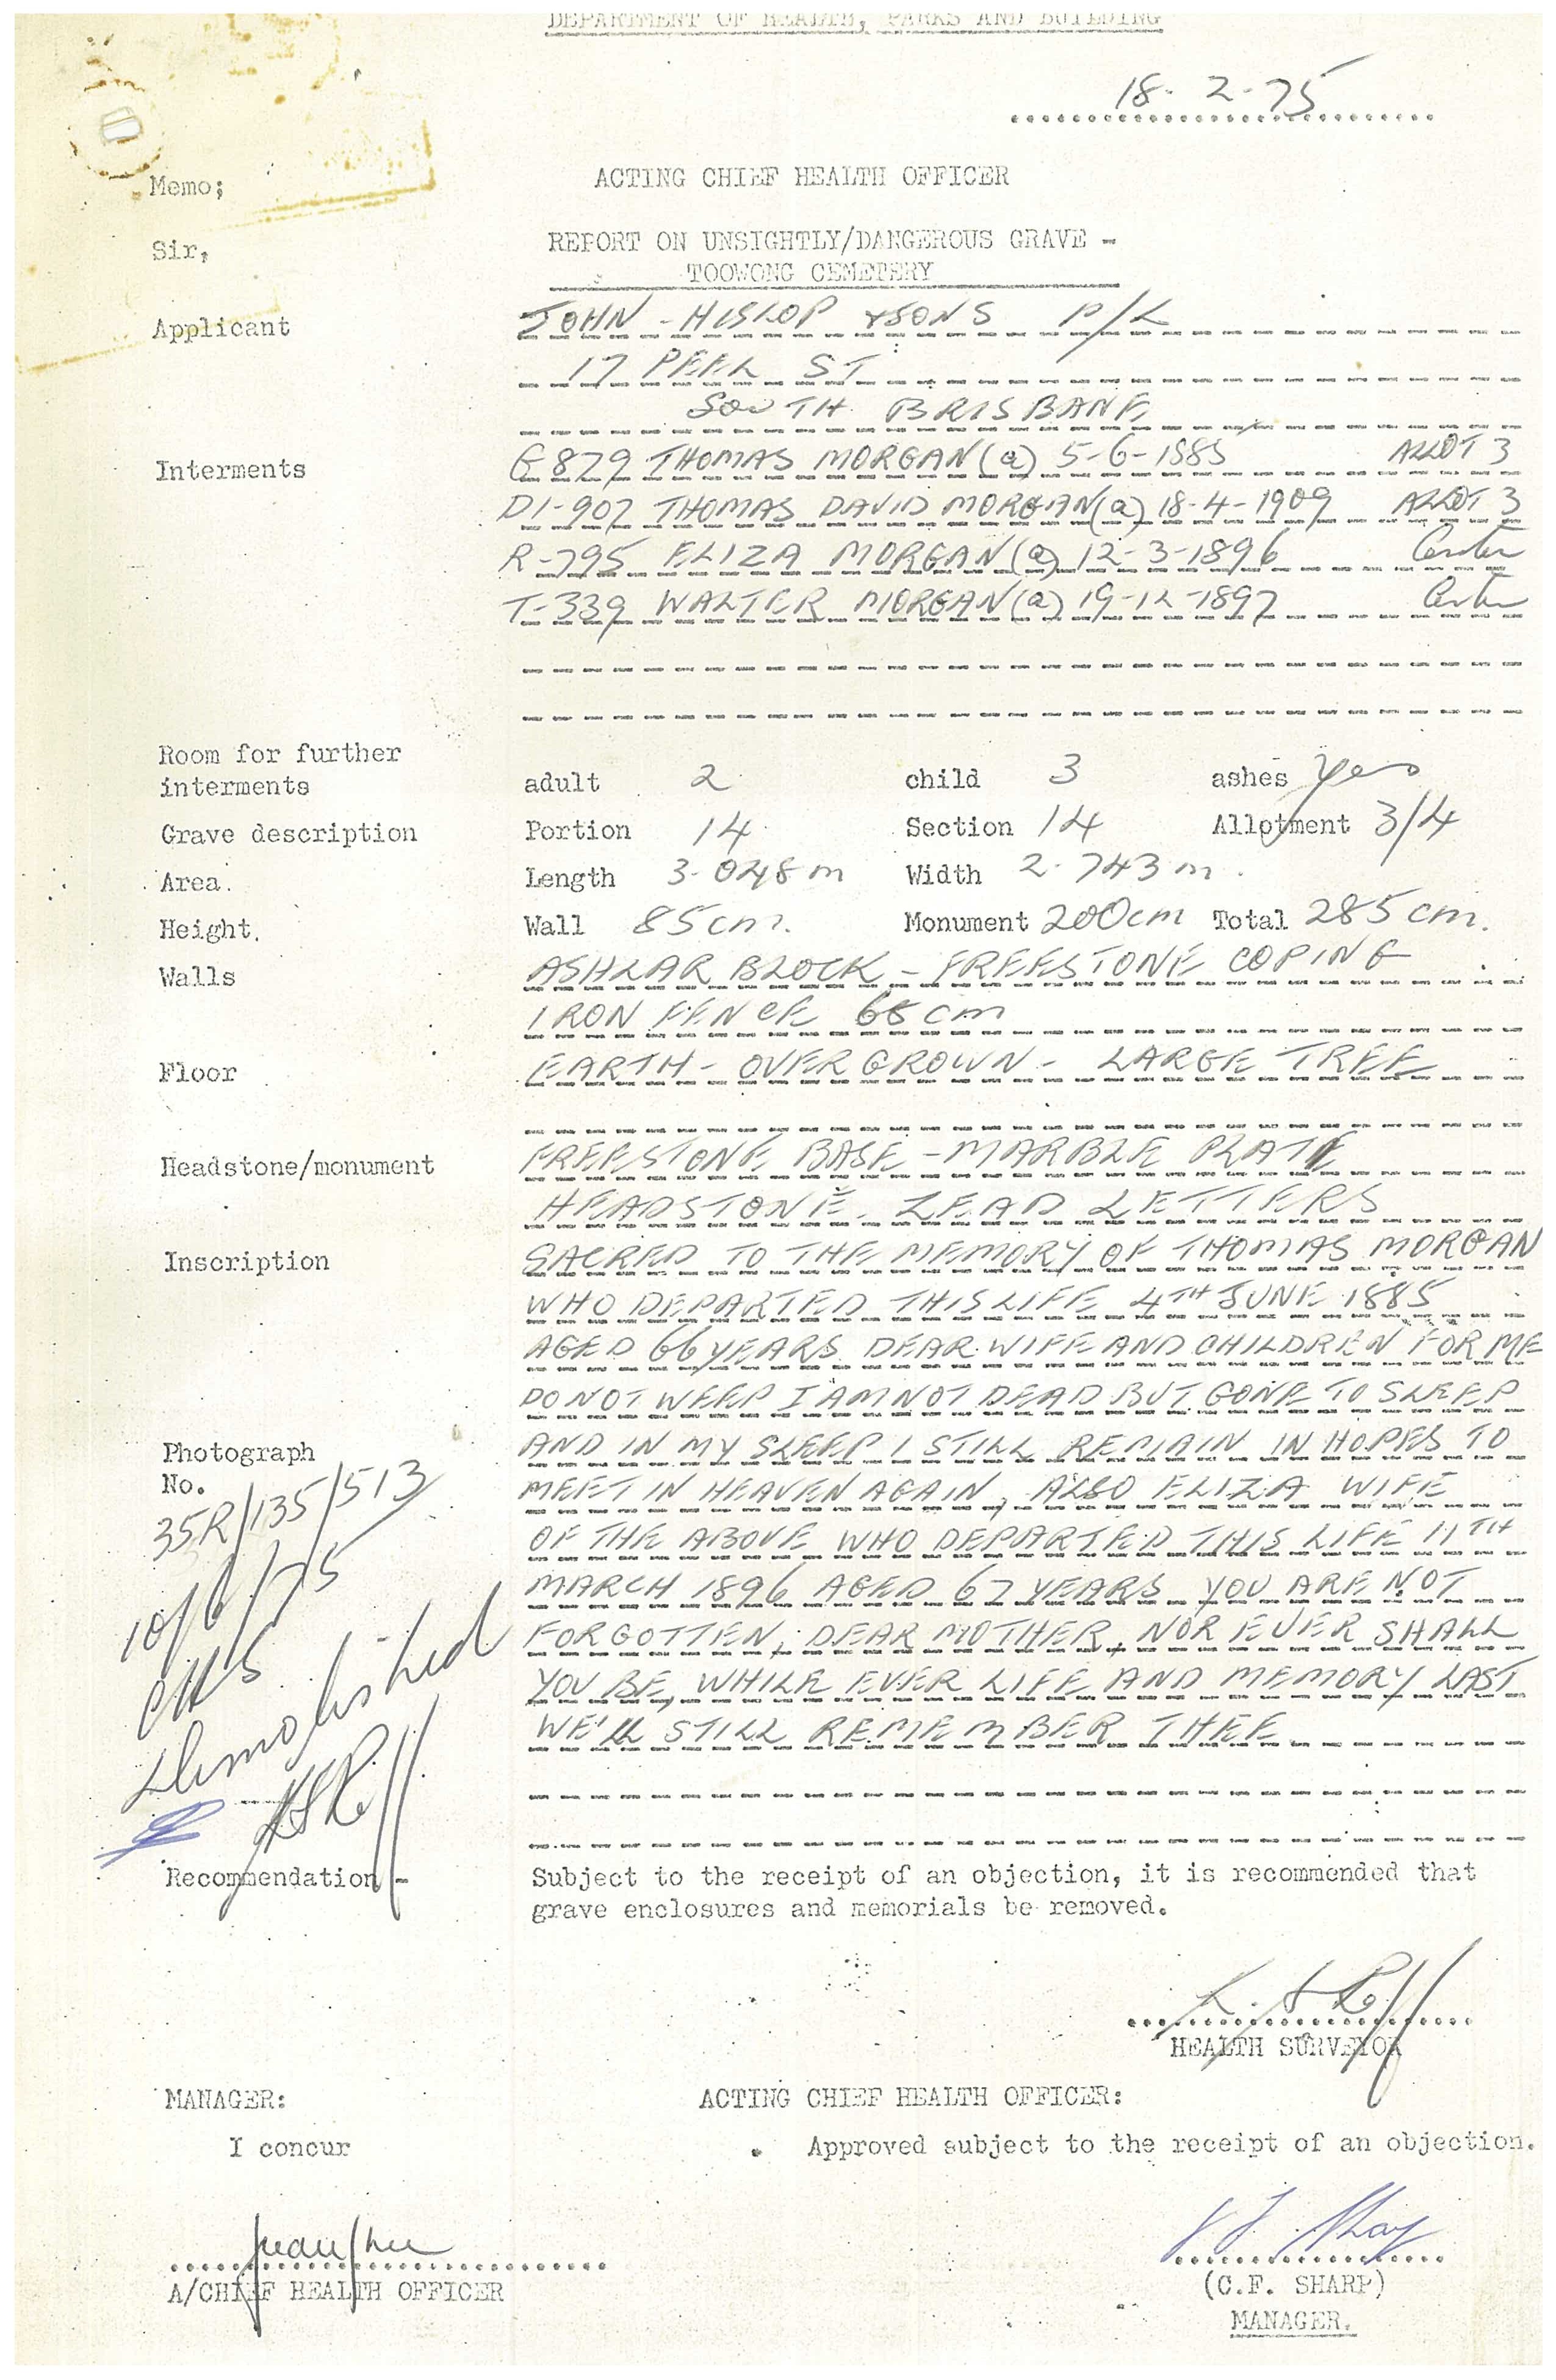 DEPARTMENT OF HEALTH, PARKS AND BUILDING
18-2-75
Memo;
ACTING CHIEF HEALTH OFFICER
Sir,
REPORT ON UNSIGHTLY/DANGEROUS GRAVE -
TOOWONG CEMETERY
Applicant JOHN - HISLOP & SONS P/L
17 PEEL ST
SOUTH BRISBANE
Interments G879 THOMAS MORGAN (a) 5-6-1885 ALLOT 3
D1-907 THOMAS DAVID MORGAN (a) 18-4-1909 ALLOT 3
R-795 ELIZA MORGAN (a) 12-3-1896 Center
T-339 WALTER MORGAN (a) 19-12-1897 Center
Room for further
interments adult 2 child 3 ashes yes
Grave description Portion 14 Section 14 Allotment 3/4
Area. Length 3.048m Width 2.743m.
Height. Wall 85cm. Monument 200cm Total 285cm.
Walls ASHLAR BLOCK - FREESTONE COPING
IRON FENCE cm
Floor EARTH - OVERGROWN - LARGE TREE
Headstone/monument FREESTONE BASE - MARBLE PLATE
HEADSTONE. LEAD LETTERS
Inscription SACRED TO THE MEMORY OF THOMAS MORGAN
WHO DEPARTED THIS LIFE 4TH JUNE 1885
AGED 66 YEARS DEAR WIFE AND CHILDREN FOR ME
DO NOT WEEP I AM NOT DEAD BUT GONE TO SLEEP
Photograph AND IN MY SLEEP I STILL REMAIN IN HOPES TO
No. MEET IN HEAVEN AGAIN, ALSO ELIZA WIFE
35R/135/513
OF THE ABOVE WHO DEPARTED THIS LIFE 11TH
MARCH 1896 AGED 67 YEARS YOU ARE NOT
10/6/75
FORGOTTEN, DEAR MOTHER, NOR EVER SHALL
YOU BE, WHILE EVER LIFE AND MEMORY LAST
WE'LL STILL REMEMBER THEE
Demolished
Recommendation - Subject to the receipt of an objection, it is recommended that
grave enclosures and memorials be removed.
HEALTH SURVEYOR
MANAGER: ACTING CHIEF HEALTH OFFICER:
I concur Approved subject to the receipt of an objection.
A/CHIEF HEALTH OFFICER
(C.F. SHARP)
MANAGER.